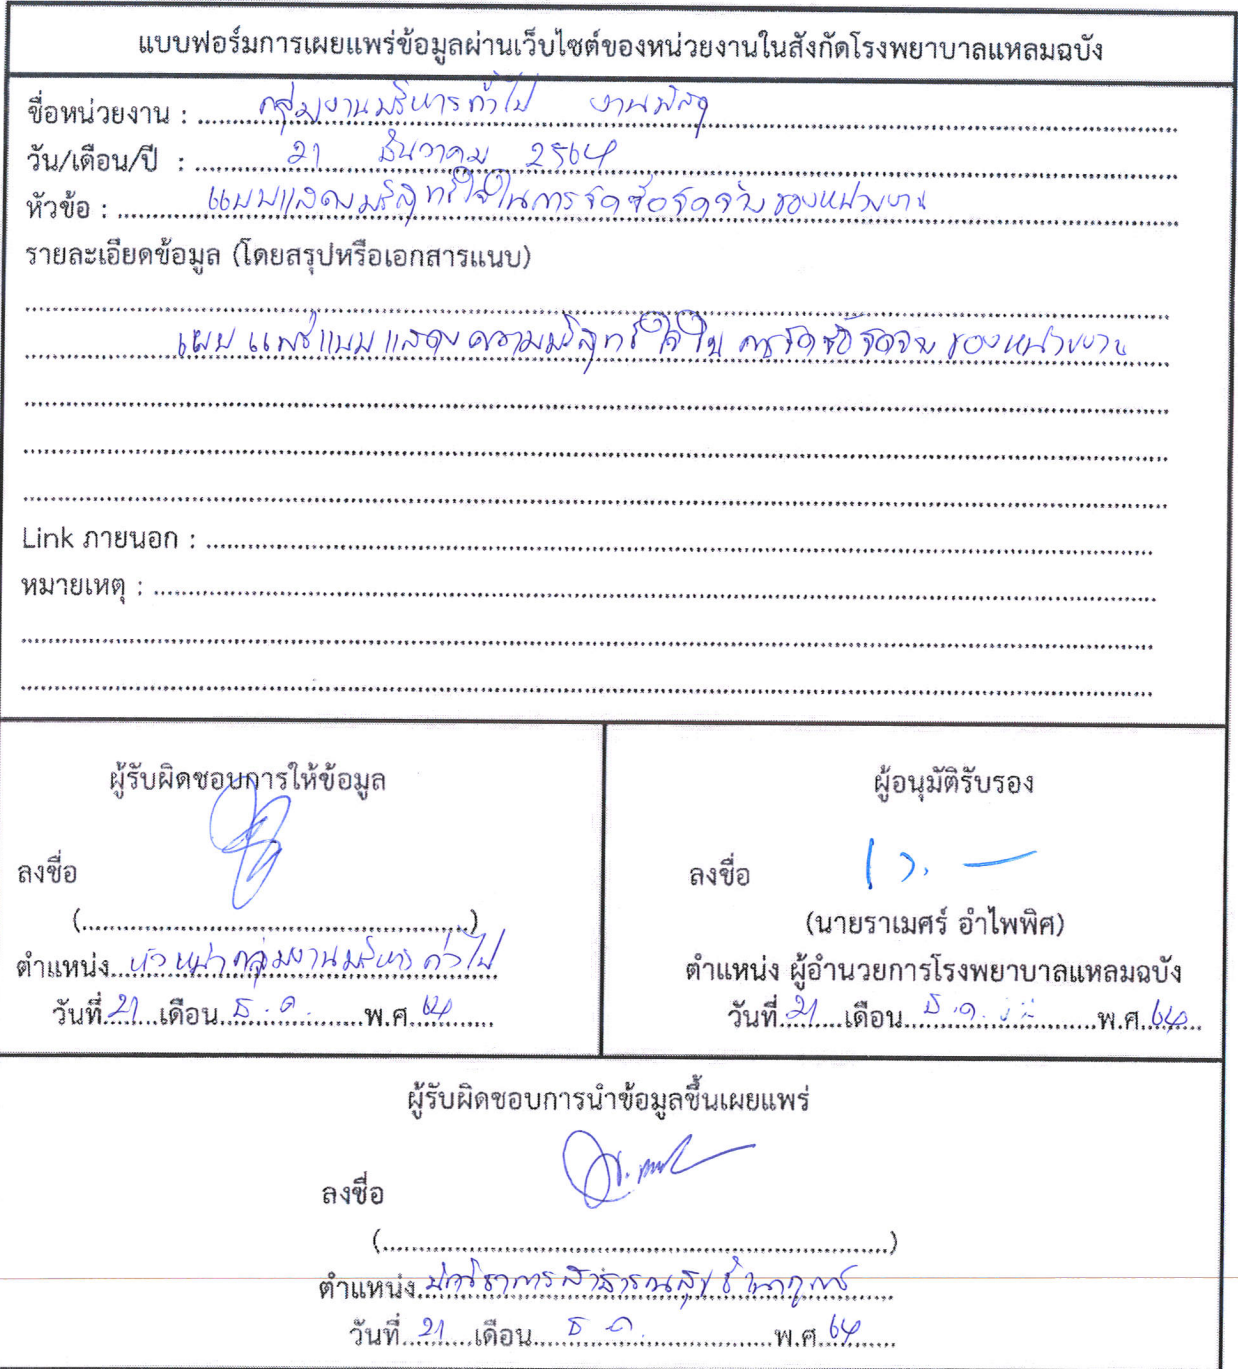 แบบฟอร์มการเผยแพร่ข้อมูลผ่านเว็บไซต์ของหน่วยงานในสังกัดโรงพยาบาลแหลมฉบัง
ชื่อหน่วยงาน : กลุ่มงานบริหารทั่วไป งานพัสดุ
วัน/เดือน/ปี : 21 ธันวาคม 2564
หัวข้อ : แบบแสดงบริสุทธิ์ใจในการจัดซื้อจัดจ้างของหน่วยงาน
รายละเอียดข้อมูล (โดยสรุปหรือเอกสารแนบ)
เผยแพร่แบบแสดงความบริสุทธิ์ใจใน การจัดซื้อจัดจ้างของหน่วยงาน
Link ภายนอก :
หมายเหตุ :
ผู้รับผิดชอบการให้ข้อมูล
ลงชื่อ
(........)
ตำแหน่ง หัวหน้ากลุ่มงานบริหารทั่วไป
วันที่ 21 เดือน ธ.ค. พ.ศ. 64
ผู้อนุมัติรับรอง
ลงชื่อ
(นายราเมศร์ อำไพพิศ)
ตำแหน่ง ผู้อำนวยการโรงพยาบาลแหลมฉบัง
วันที่ 21 เดือน ธ.ค. พ.ศ. 64
ผู้รับผิดชอบการนำข้อมูลขึ้นเผยแพร่
ลงชื่อ
(........)
ตำแหน่ง นักวิชาการสาธารณสุขชำนาญการ
วันที่ 21 เดือน ธ.ค. พ.ศ. 64